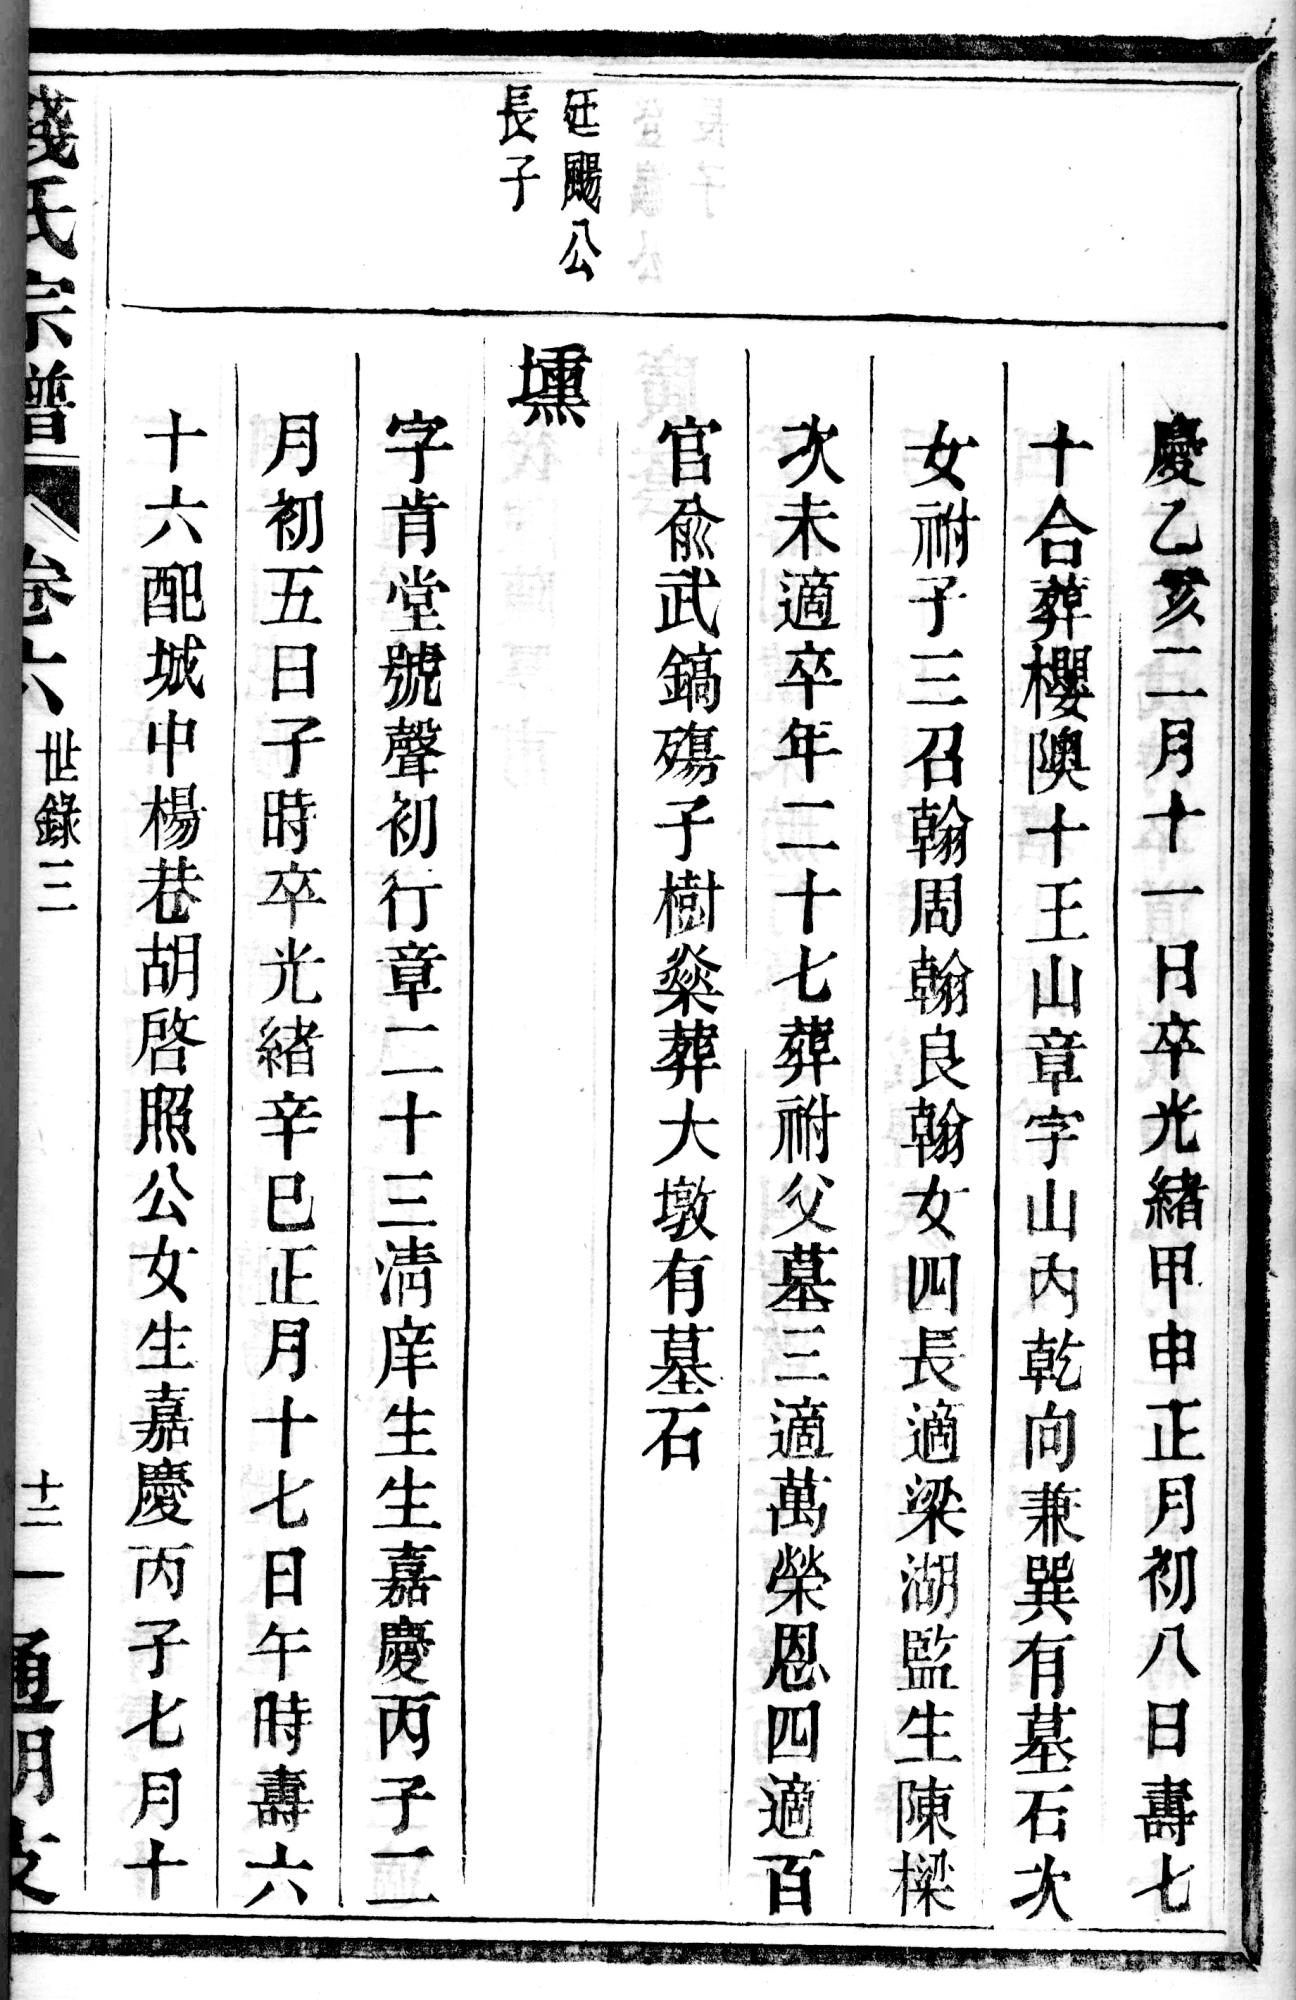 慶乙亥二月十一日卒光緒甲申正月初八日壽七
十合葬櫻隩十王山章字山內乾向兼巽有墓石次
女祔子三召翰周翰良翰女四長適梁湖監生陳樑
次未適卒年二十七葬祔父墓三適萬榮恩四適百
官俞武鎬殤子樹燊葬大墩有墓石
廷颺公
長子
壎
字肯堂號聲初行章二十三清庠生生嘉慶丙子二
月初五日子時卒光緒辛巳正月十七日午時壽六
十六配城中楊巷胡啓照公女生嘉慶丙子七月十
錢氏宗譜 卷六 世錄三 十二 通明支